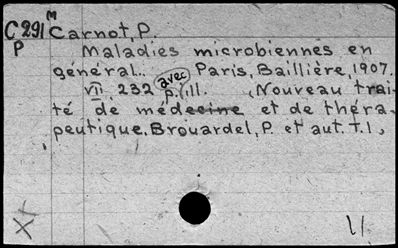 M
C291 Carnot, P.
P Maladies microbiennes en
général.. avec Paris, Baillière, 1907.
VII 232 p. ill. (Nouveau trai-
té de médecine et de théra-
peutique. Brouardel, P. et aut. t.1,
X